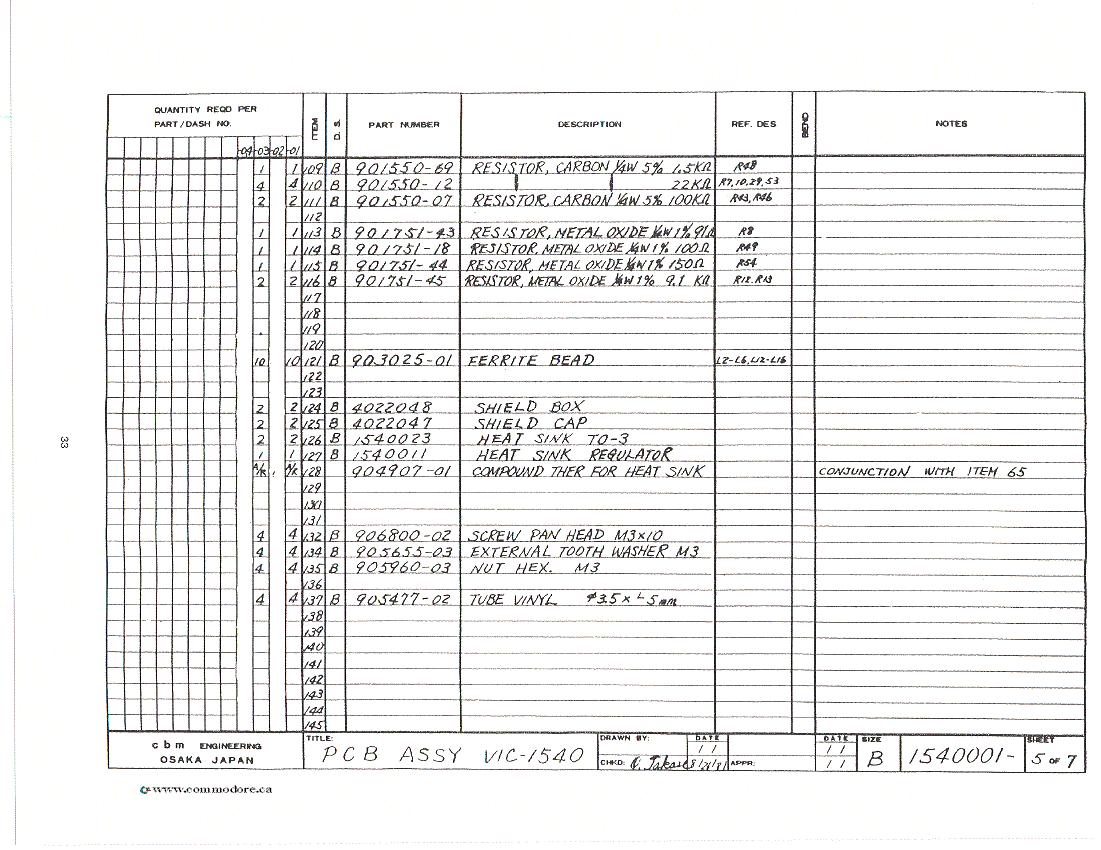 QUANTITY REQD PER
PART/DASH NO.
-04 -03 -02 -01
ITEM
D. S.
PART NUMBER
DESCRIPTION
REF. DES
BEND
NOTES
1 1 109 B 901550-69 RESISTOR, CARBON ¼W 5% 1.5KΩ R48
4 4 110 B 901550-12 22KΩ R7,10,29,53
2 2 111 B 901550-07 RESISTOR, CARBON ¼W 5% 100KΩ R43, R46
112
1 1 113 B 901751-43 RESISTOR, METAL OXIDE ¼W 1% 91Ω R8
1 1 114 B 901751-18 RESISTOR, METAL OXIDE ¼W 1% 100Ω R49
1 1 115 B 901751-44 RESISTOR, METAL OXIDE ¼W 1% 150Ω R54
2 2 116 B 901751-45 RESISTOR, METAL OXIDE ¼W 1% 9.1 KΩ R12, R13
117
118
119
120
10 10 121 B 903025-01 FERRITE BEAD L2-L6, L12-L16
122
123
2 2 124 B 4022048 SHIELD BOX
2 2 125 B 4022047 SHIELD CAP
2 2 126 B 1540023 HEAT SINK TO-3
1 1 127 B 1540011 HEAT SINK REGULATOR
A/R A/R 128 904907-01 COMPOUND THER FOR HEAT SINK CONJUNCTION WITH ITEM 65
129
130
131
4 4 132 B 906800-02 SCREW PAN HEAD M3×10
4 4 134 B 905655-03 EXTERNAL TOOTH WASHER M3
4 4 135 B 905960-03 NUT HEX. M3
136
4 4 137 B 905477-02 TUBE VINYL φ3.5 × L 5mm
138
139
140
141
142
143
144
145
33
cbm ENGINEERING
OSAKA JAPAN
TITLE:
PCB ASSY VIC-1540
DRAWN BY:
DATE
/ /
CHKD: 8/21/81
APPR:
DATE
/ /
/ /
SIZE
B
1540001-
SHEET
5 OF 7
www.commodore.ca